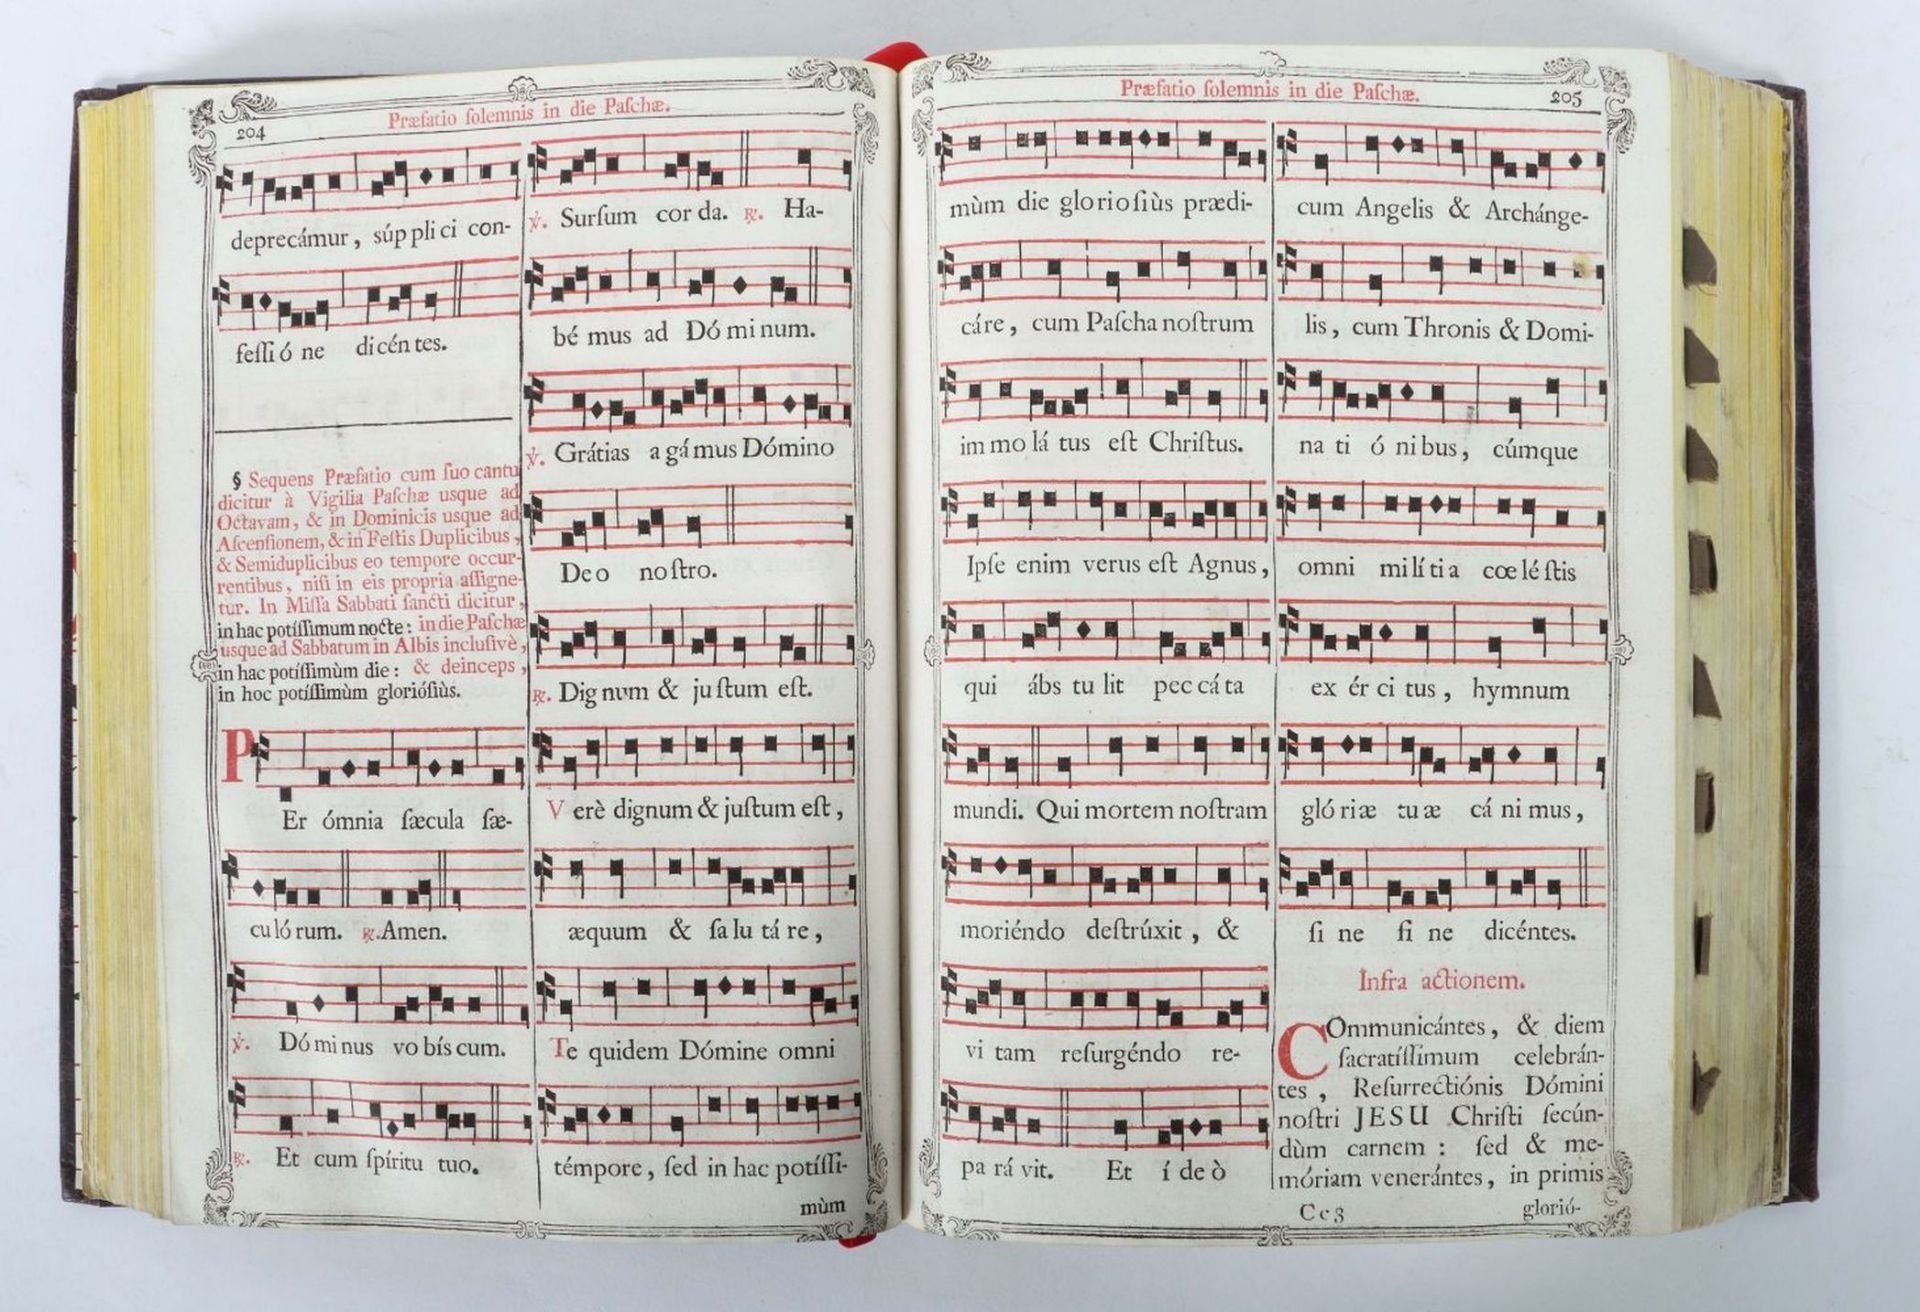 204
Præfatio ſolemnis in die Paſchæ.
deprecámur, súp pli ci con-
feſſi ó ne di cén tes.
§ Sequens Præfatio cum ſuo cantu
dicitur à Vigilia Paſchæ usque ad
Octavam, & in Dominicis usque ad
Aſcenſionem, & in Feſtis Duplicibus,
& Semiduplicibus eo tempore occur-
rentibus, niſi in eis propria aſſigne-
tur. In Miſſa Sabbati ſancti dicitur,
in hac potíſſimum nocte: in die Paſchæ
usque ad Sabbatum in Albis incluſivè,
in hac potíſſimùm die: & deinceps,
in hoc potíſſimùm gloriósiùs.
PEr ómnia ſæcula ſæ-
cu ló rum. ℟. Amen.
℣. Dó mi nus vo bís cum.
℟. Et cum ſpíritu tuo.
℣. Surſum cor da. ℟. Ha-
bé mus ad Dó mi num.
℣. Grátias a gá mus Dómino
De o no ſtro.
℟. Dig num & ju ſtum eſt.
V erè dignum & juſtum eſt,
æquum & ſa lu tá re,
Te quidem Dómine omni
témpore, ſed in hac potíſſi-
mùm
Præfatio ſolemnis in die Paſchæ.
205
mùm die glo rio ſiùs prædi-
cáre, cum Paſcha noſtrum
im mo lá tus eſt Chriſtus.
Ipſe enim verus eſt Agnus,
qui ábs tu lit pec cá ta
mundi. Qui mortem noſtram
moriéndo deſtrúxit, &
vi tam reſurgéndo re-
pa rá vit. Et í de ò
cum Angelis & Archánge-
lis, cum Thronis & Domi-
na ti ó ni bus, cúmque
omni milí ti a cœ lé ſtis
ex ér ci tus, hymnum
gló ri æ tu æ cá ni mus,
ſi ne fi ne dicéntes.
Infra actionem.
COmmunicántes, & diem
ſacratíſſimum celebrán-
tes, Reſurrectiónis Dómini
noſtri JESU Chriſti ſecún-
dùm carnem: ſed & me-
móriam venerántes, in primis
Cc3
glorió-